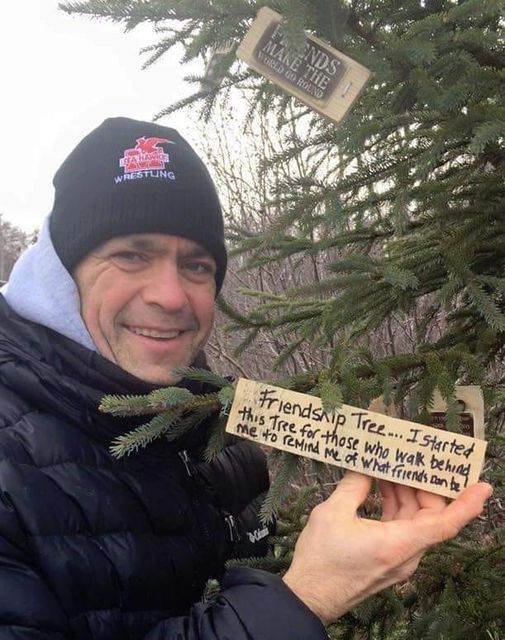 FRIENDS
MAKE THE
WORLD GO ROUND
SEA HAWKS
WRESTLING
Friendship Tree.... I started
this Tree for those who walk behind
me to remind me of what friends can be
Columbia